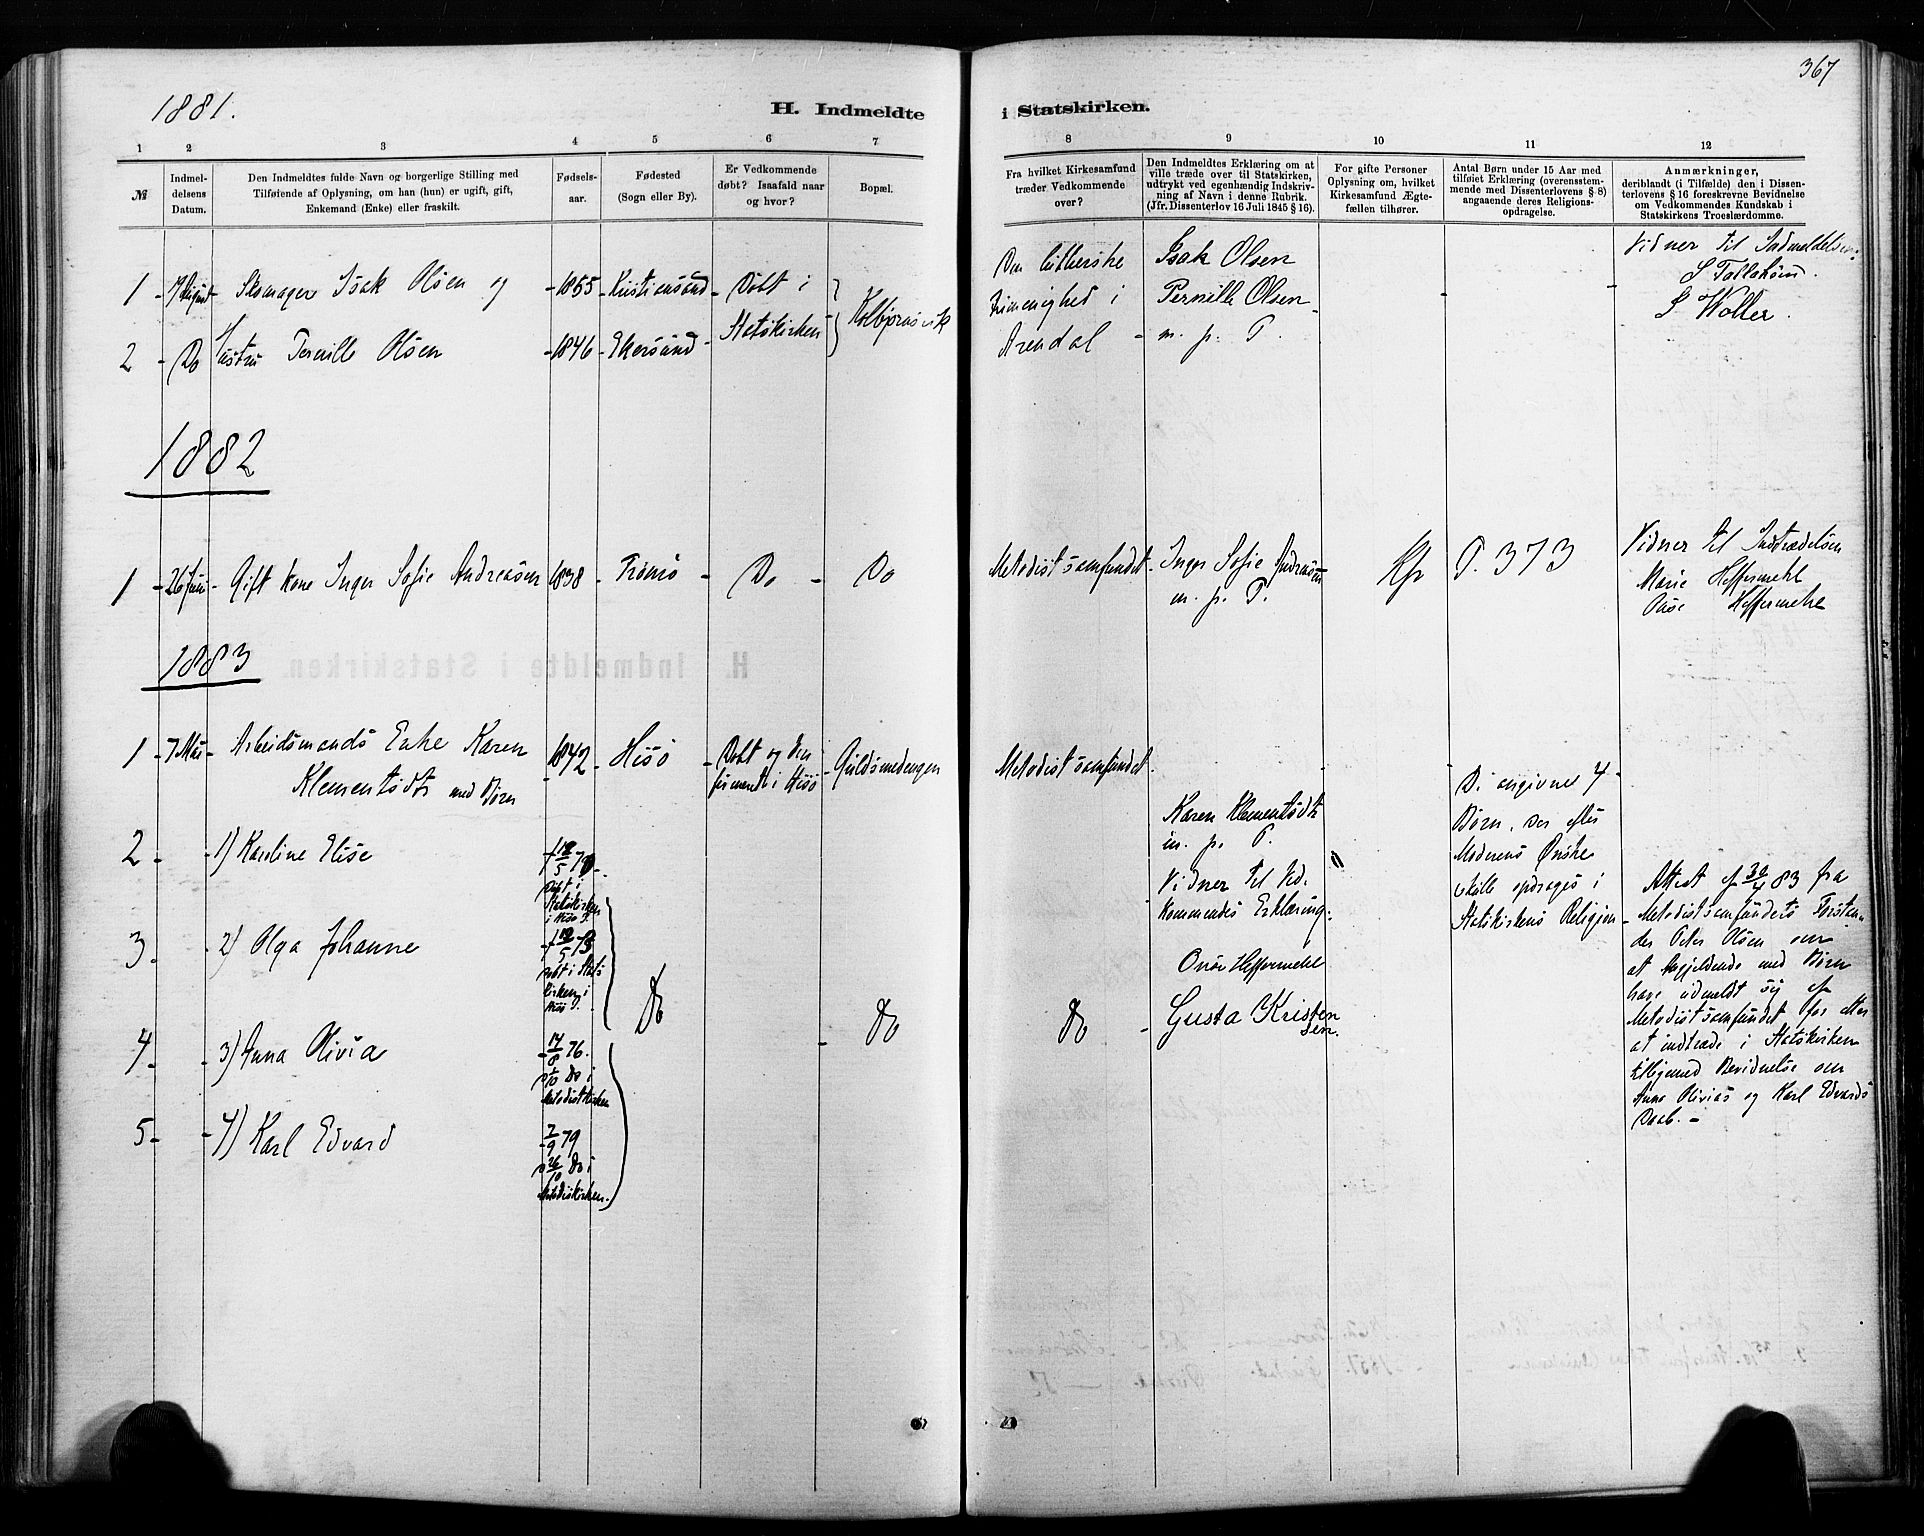 367
1881.
H. Indmeldte i Statskirken.
1 2 3 4 5 6 7 8 9 10 11 12
№
Indmel-
delsens
Datum.
Den Indmeldtes fulde Navn og borgerlige Stilling med
Tilføiende af Oplysning, om han (hun) er ugift, gift,
Enkemand (Enke) eller fraskilt.
Fødsels-
aar.
Fødested
(Sogn eller By).
Er Vedkommende
døbt? Isaafald naar
og hvor?
Bopæl.
Fra hvilket Kirkesamfund
træder Vedkommende
over?
Den Indmeldtes Erklæring om at
ville træde over til Statskirken,
udtrykt ved egenhændig Indskriv-
ning af Navn i denne Rubrik.
(Jfr. Dissenterlov 16 Juli 1845 § 16).
For gifte Personer
Oplysning om, hvilket
Kirkesamfund Ægte-
fællen tilhører.
Antal Børn under 15 Aar med
tilføiet Erklæring (overensstem-
mende med Dissenterlovens § 8)
angaaende deres Religions-
opdragelse.
Anmærkninger,
deriblandt (i Tilfælde) den i Dissen-
terlovens § 16 foreskrevne Bevidnelse
om Vedkommendes Kundskab i
Statskirkens Troeslærdomme.
1 - August - Skomager Isak Olsen og - 1855 - Kristiansand - Døbt i
Statskirken
Kolbjørnsvik
2 - Do Hustru Pernille Olsen - 1846 - Ekersund -
Den lutherske
Frimenighed i
Arendal -
Isak Olsen
Pernille Olsen -
m. p. P.
Vidner til Indmeldelsen:
S Woller.
1882
1 - 26 Juni - Gift kone Inger Sofie Andreasen 1838 - Tromø - Do - Do
Metodistsamfundet - Inger Sofie Andreasen
m. p. P.
P. 373
Vidner til Indtrædelsen
Marie Heffermehl
Heffermehl
1883
1 - 7 Mai - Arbeidsmands Enke Karen
Klementsdtr med Børn
- 1842 - Hisö - Døbt og kon
firmeret i Hisö
Guldsmedengen
Metodistsamfundet
2 - - 1) Karoline Elise
18/5 70 -
Døbt i
Statskirken
i Hisö S.
3 - - 2) Olga Johanne
18/5 73
Døbt i Stats
kirken i
Hisö S.
Do Do Do -
4 - - 3) Anna Olivia
- 14/8 76.
Do i
Metodistkirken
5 - - 4) Karl Edvard
- 2/9 79
26/10 Do i
Metodistkirken.
Karen Klementsdtr
m. p. P.
Vidner til Ved-
kommendes Erklæring:
Onse Heffermehl
Gusta Kristen
sen.
Di angivne 4 -
Børn, der efter
Moderens Ønske
skulle opdrages i
Statskirkens Religion -
Attest af 30/4 83 fra
Metodistsamfundets Forstan-
der Peter Olsen om
at Angjeldende med Børn
have udmeldt sig af
Metodistsamfundet for atter
at indtræde i Statskirken
tilligemed Bevidnelse om
Anna Olivias og Karl Edvards
Daab. -